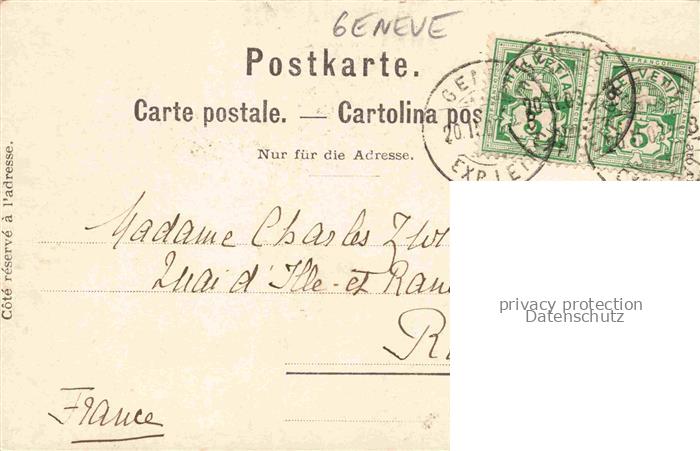 GENEVE
Postkarte.
Carte postale. — Cartolina pos
Nur für die Adresse.
Côté réservé à l'adresse.
FRANCO
HELVETIA
5
5
EXP. LET
Madame Charles
Quai d'Ille-et-Ran
R
France
privacy protection
Datenschutz